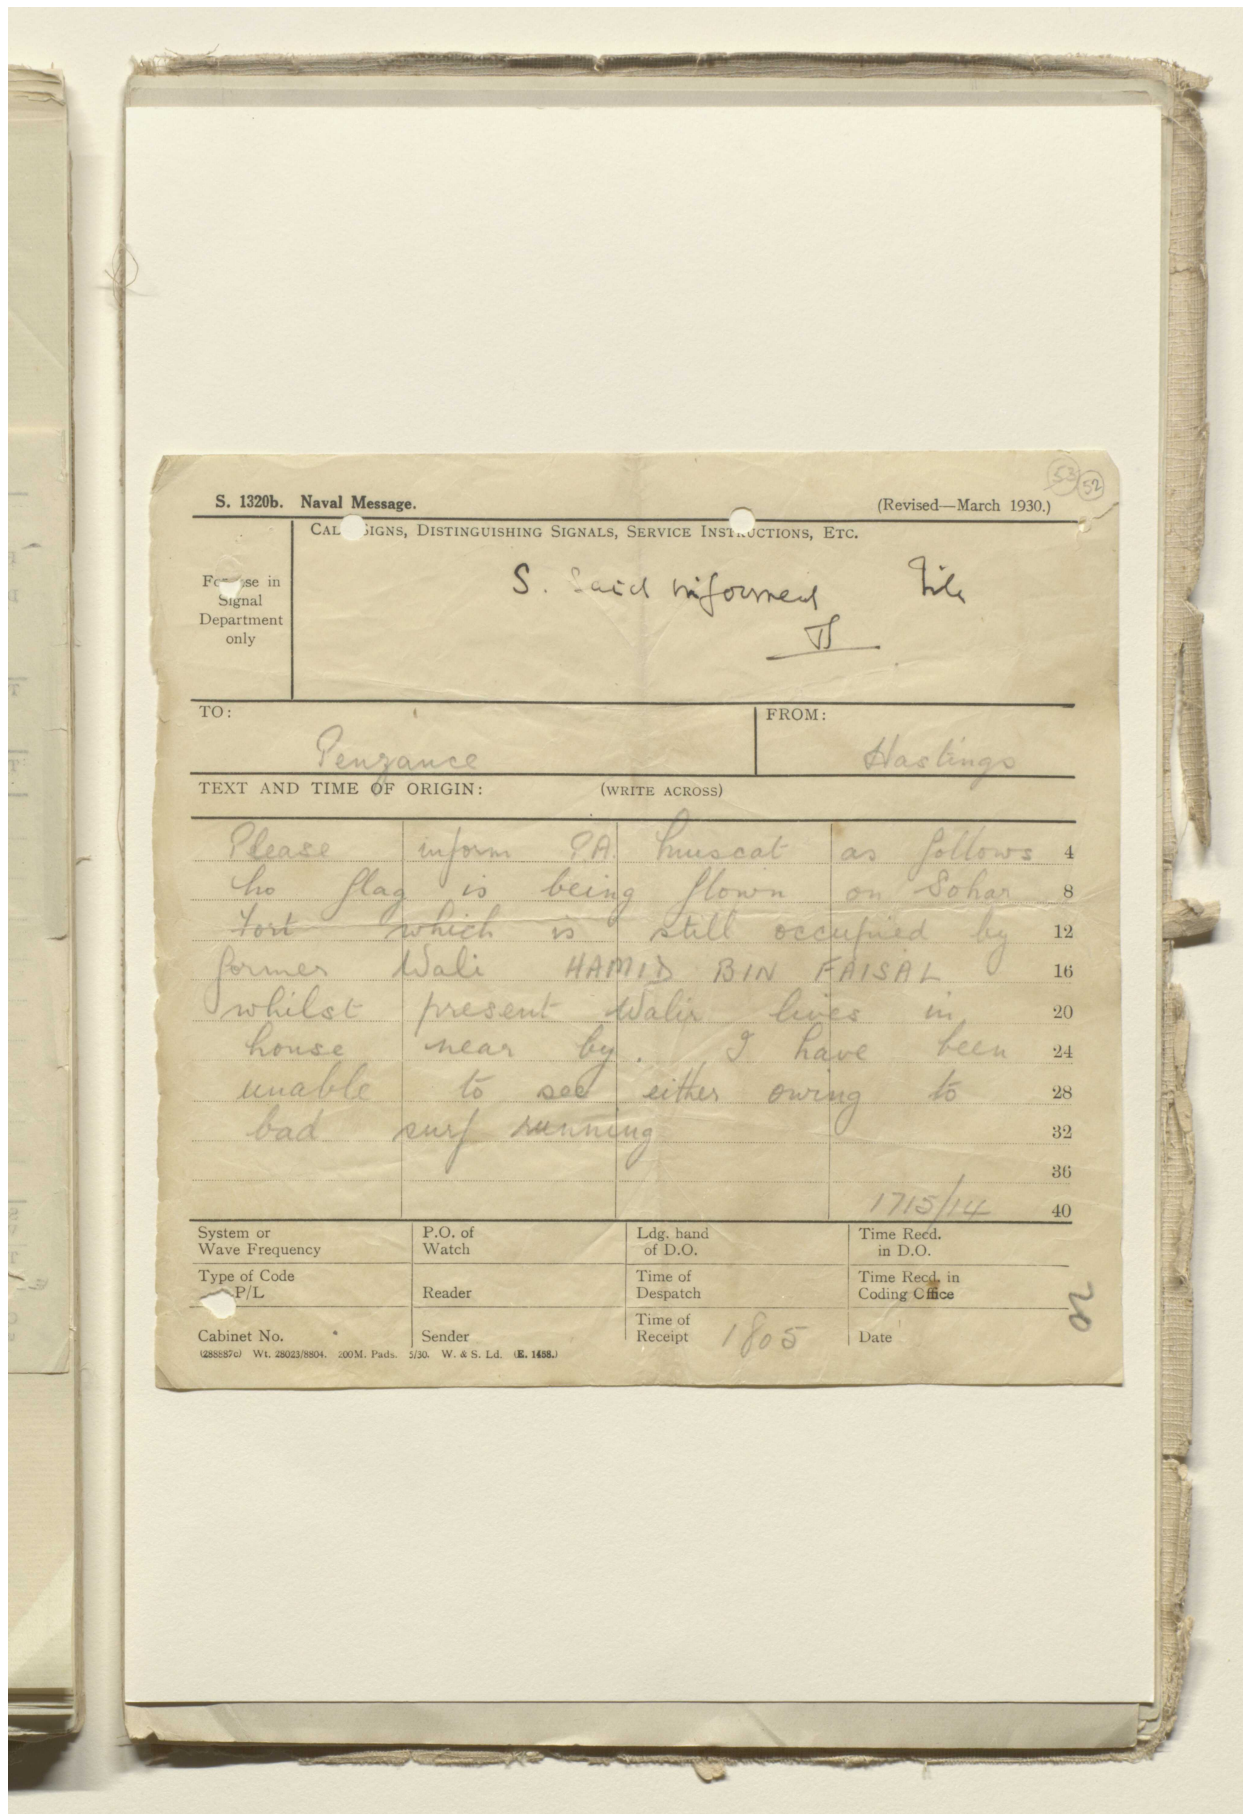 53 52
S. 1320b. Naval Message. (Revised—March 1930.)
CALL SIGNS, DISTINGUISHING SIGNALS, SERVICE INSTRUCTIONS, ETC.
For use in
Signal
Department
only
S. Said informed File
TO: FROM:
Penzance Hastings
TEXT AND TIME OF ORIGIN: (WRITE ACROSS)
Please inform P.A. Muscat as follows 4
No flag is being flown on Sohar 8
Fort which is still occupied by 12
former Wali HAMID BIN FAISAL 16
whilst present Walir lives in 20
house near by. I have been 24
unable to see either owing to 28
bad surf running 32
36
1715/14 40
System or
Wave Frequency
P.O. of
Watch
Ldg. hand
of D.O.
Time Recd.
in D.O.
Type of Code
P/L
Reader
Time of
Despatch
Time Recd. in
Coding Office
Cabinet No.
Sender
Time of
Receipt 1805
Date
(288887c) Wt. 28023/8804. 200M. Pads. 5/30. W. & S. Ld. (E. 1488.)